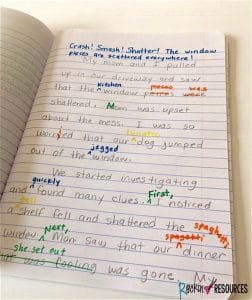 Crash! Smash! Shatter! The window
pieces are scattered everywhere!
My mom and I pulled
up in our driveway and saw
kitchen
that the ^ window pieces was
were
shattered. Mom was upset
about the mess. I was so
lunatic
worried that our ^ dog jumped
jagged
out of the ^ window.
We started investigating
quickly First,
and ^ found many clues. ^ I noticed
tall
a ^ shelf fell and shattered the
Next, spaghetti
window. ^ Mom saw that our ^ dinner
she set out
was gone. My
Rockin' RESOURCES